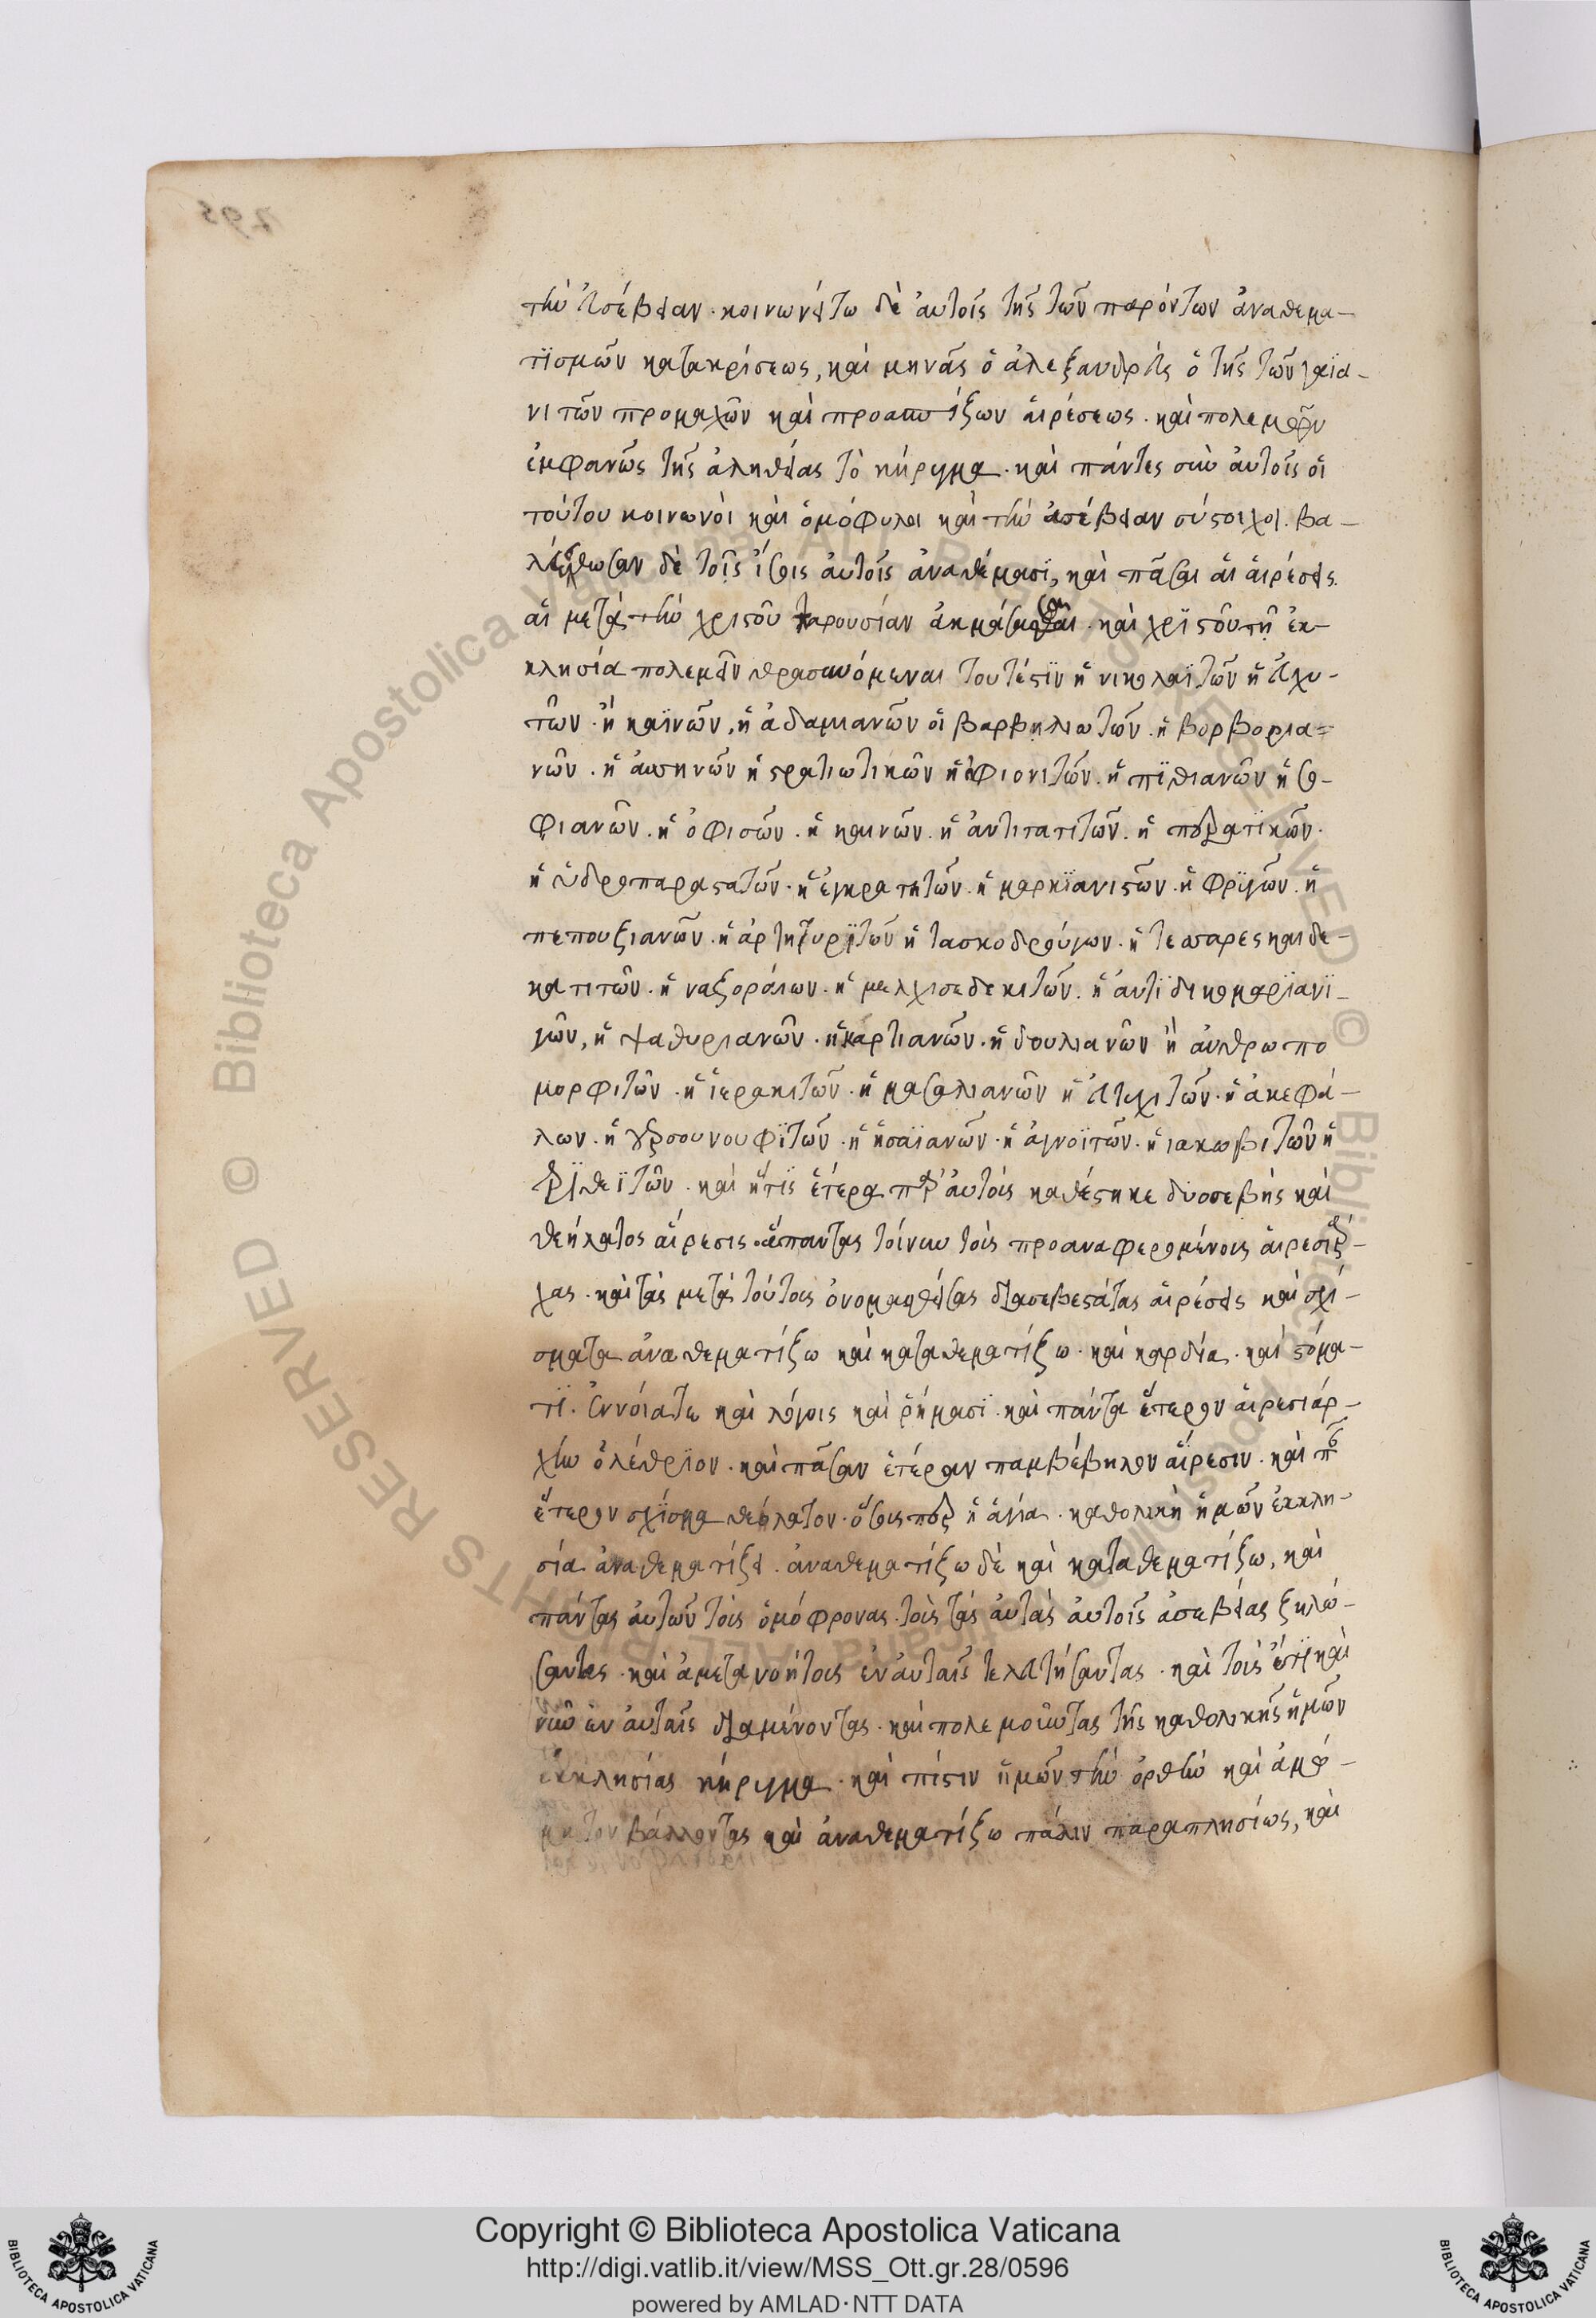 τὴν ἀσέβειαν. κοινωνείτω δὲ αὐτοῖς τῆς τῶν παρόντων ἀναθεμα-
τϊσμῶν κατακρίσεως, καὶ μηνᾶς ὁ ἀλεξανδρεὺς ὁ τῆς τῶν γαϊα-
νιτῶν προμαχῶν καὶ προασπίζων αἱρέσεως. καὶ πολεμῶν
ἐμφανῶς τῆς ἀληθείας τὸ κήρυγμα. καὶ πάντες σὺν αὐτοῖς οἱ
τούτου κοινωνοὶ καὶ ὁμόφυλοι καὶ τὴν ἀσέβειαν σύστοιχοι. βα-
δὲ τοῖς ἴσοις αὐτοῖς ἀναθέμασϊ, καὶ πᾶσαι αἱ αἱρέσεις.
αἱ μετὰ τὴν χριστοῦ παρουσίαν ἀκμάσασαι. καὶ χρϊστοῦ τῇ ἐκ-
κλησία πολεμεῖν θρασυνόμεναι τουτέστϊν ἡ νικολαϊτῶν ἡ εὐχυ-
τῶν. ἡ καϊνῶν, ἡ ἀδαμιανῶν οἱ βαρβηλιωτῶν. ἡ βορβορια=
νῶν. ἡ ἀασηνῶν ἡ στρατιωτικῶν ἡ ἐφιονιτῶν. ἡ πϊθιανῶν ἡ σο-
φιανῶν. ἡ ὀφιτῶν. ἡ καινῶν. ἡ ἀντιτατιτῶν. ἡ
ἡ ὑδροπαραστατῶν. ἡ ἐγκρατητῶν. ἡ μαρκϊανιστῶν. ἡ φρϊγῶν. ἡ
πεπουζιανῶν. ἡ ἀρτητυρϊτῶν ἡ τασκοδρούγων. ἡ τεσσαρεσκαιδε-
κατιτῶν. ἡ ναζοραίων. ἡ μελχισεδεκιτῶν. ἡ ἀντϊδικομαρϊανϊ-
τῶν, ἡ ψαθυριανῶν. ἡ καρτιανῶν. ἡ δουλιανῶν ἡ ἀνθρωπο
μορφιτῶν. ἡ ἱερακιτῶν. ἡ μασαλιανῶν ἡ εὐτυχιτῶν. ἡ ἀκεφά-
λων. ἡ ἡ ἡσαϊανῶν. ἡ ἀγνοϊτῶν. ἡ ιακωβιτῶν ἡ
τρϊθεϊτῶν. καὶ ἥτϊς ἑτέρα παρ' αὐτοὶς καθέστηκε δυσσεβὴς καὶ
θεήλατος αἵρεσις. ἅπαντας τοίνυν τοὺς προαναφερομένους αἱρεσιάρ-
χας. καὶ τὰς μετὰ τούτους ὀνομασθείσας δυσσεβεστάτας αἱρέσεις καὶ σχί-
σματα ἀναθεματίζω καὶ καταθεματίζω. καὶ καρδία. καὶ στόμα-
τϊ. ἐννοίατε καὶ λόγοις καὶ ῥήμασϊ. καὶ πάντα ἕτερον αἱρεσιάρ-
χην ὀλέθρϊον. καὶ πᾶσαν ἑτέραν παμβέβηλον αἵρεσιν. καὶ πᾶν
ἕτερον σχίσμα θεήλατον. ὅσοις περ ἡ ἁγία. καθολικὴ ἡμῶν ἐκκλη-
σία ἀναθεματίζει. ἀναθεματίζω δὲ καὶ καταθεματίζω, καὶ
πάντας αὐτῶν τοὺς ὁμόφρονας. τοὺς τὰς αὐτὰς αὐτοῖς ἀσεβείας ζηλώ-
σαντας. καὶ ἀμετανοήτους ἐν αὐταῖς τελευτήσαντας. καὶ τοὺς ἔτϊ καὶ
νῦν ἐν αὐταῖς διαμένοντας. καὶ πολεμοῦντας τῆς καθολικῆς ἡμῶν
ἐκκλησίας κήρυγμα. καὶ πίστιν ἡμῶν τὴν ὀρθὴν καὶ ἀμώ-
μητον βάλλοντας καὶ ἀναθεματίζω πάλιν παραπλησίως, καὶ
Copyright © Biblioteca Apostolica Vaticana
http://digi.vatlib.it/view/MSS_Ott.gr.28/0596
powered by AMLAD·NTT DATA